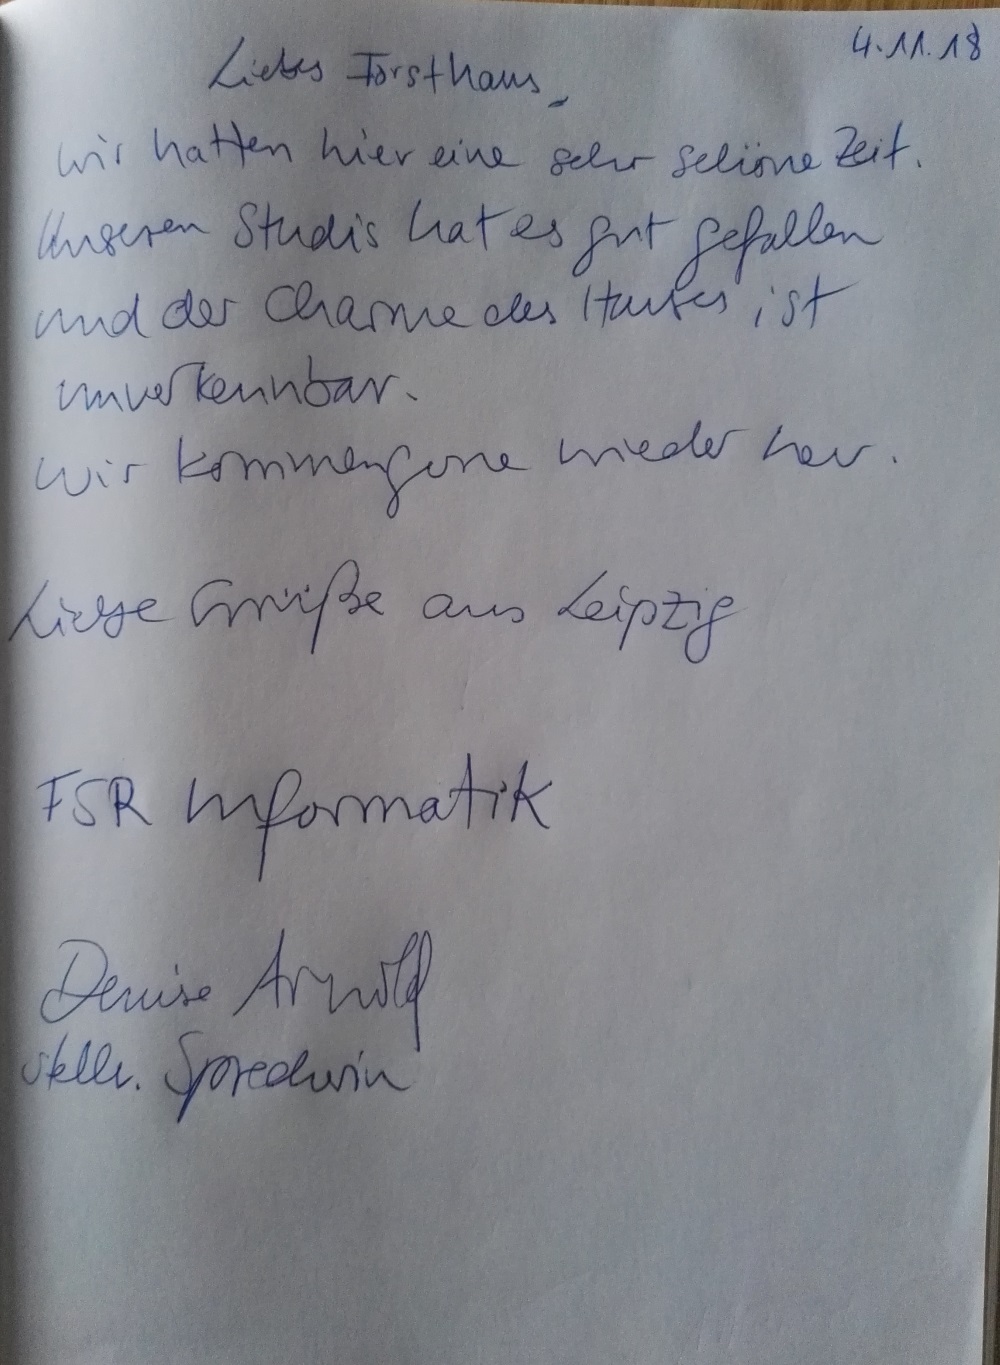 4.11.18
Liebes Forsthaus,
wir hatten hier eine sehr schöne Zeit.
Unseren Studis hat es gut gefallen
und der Charme des Hauses ist
unverkennbar.
Wir kommen gerne wieder her.
Liebe Grüße aus Leipzig
FSR Informatik
Denise Arnold
stellv. Sprecherin